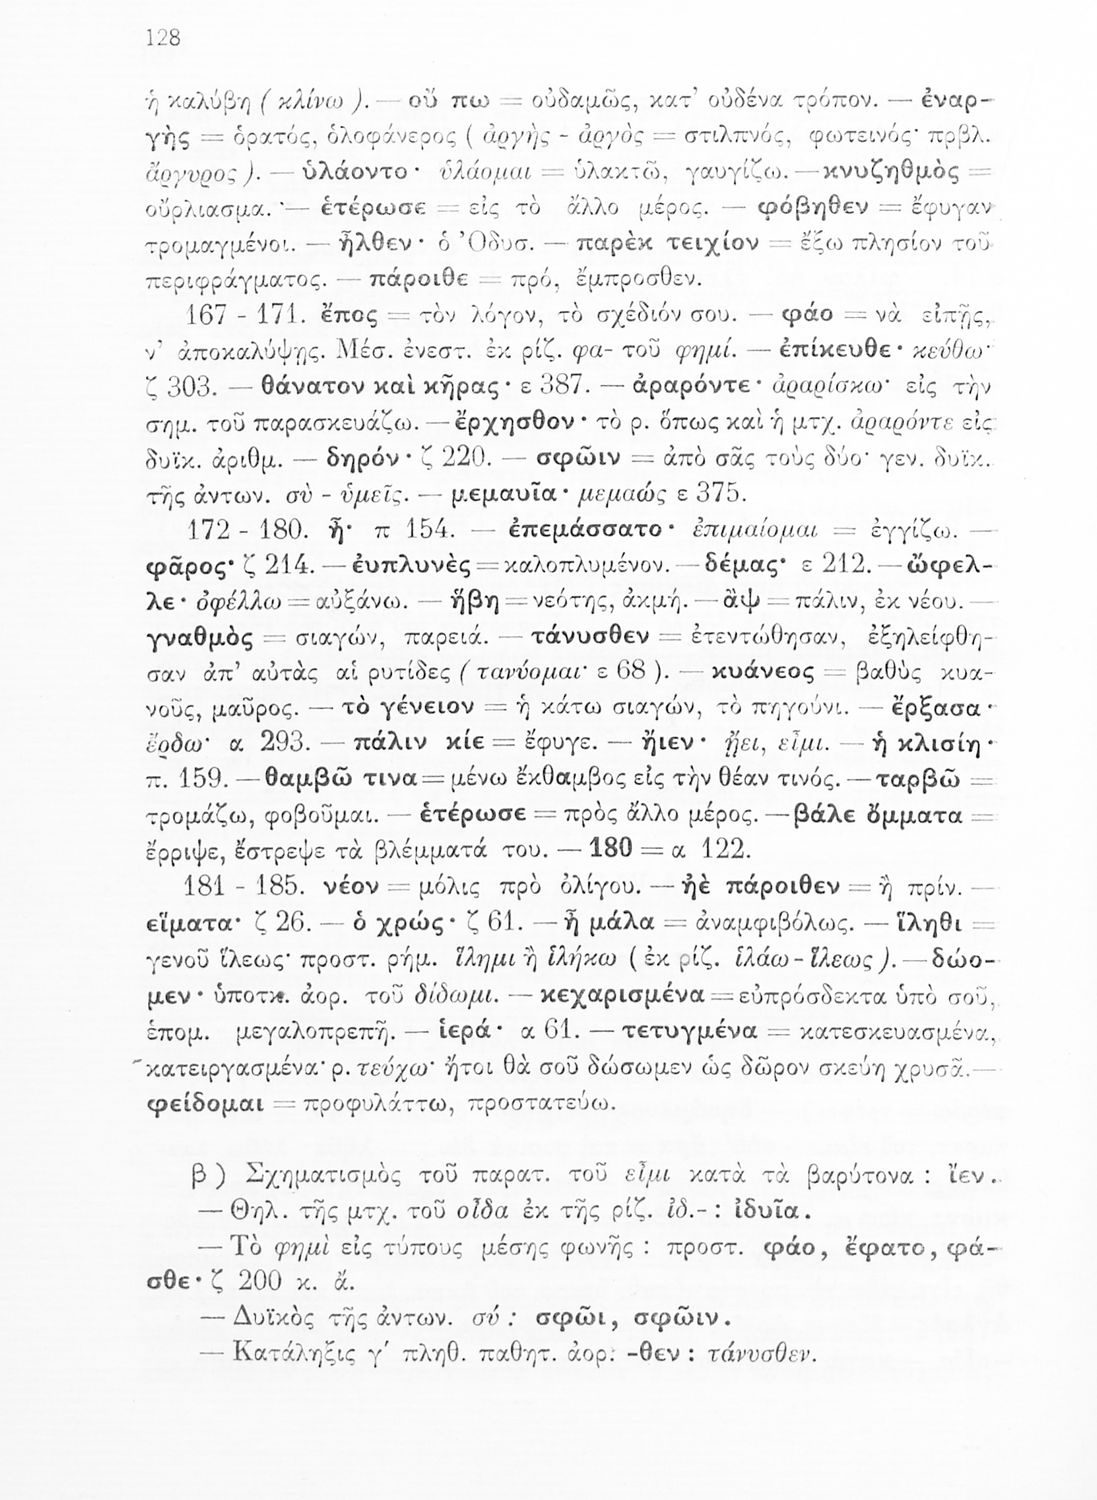 128
ἡ καλύβη ( κλίνω ). — οὔ πω = οὐδαμῶς, κατ' οὐδένα τρόπον. — ἐναρ-
γὴς = ὁρατός, ὁλοφάνερος ( ἀργὴς - ἀργὸς = στιλπνός, φωτεινός· πρβλ.
ἄργυρος ). — ὑλάοντο · ὑλάομαι = ὑλακτῶ, γαυγίζω. — κνυζηθμὸς =
οὔρλιασμα. — ἑτέρωσε = εἰς τὸ ἄλλο μέρος. — φόβηθεν = ἔφυγαν
τρομαγμένοι. — ἦλθεν · ὁ Ὀδυσ. — παρὲκ τειχίον = ἔξω πλησίον τοῦ
περιφράγματος. — πάροιθε = πρό, ἔμπροσθεν.
167 - 171. ἔπος = τὸν λόγον, τὸ σχέδιόν σου. — φάο = νὰ εἰπῇς,
ν' ἀποκαλύψῃς. Μέσ. ἐνεστ. ἐκ ρίζ. φα- τοῦ φημί. — ἐπίκευθε · κεύθω·
ζ 303. — θάνατον καὶ κῆρας · ε 387. — ἀραρόντε · ἀραρίσκω· εἰς τὴν
σημ. τοῦ παρασκευάζω. — ἔρχησθον · τὸ ρ. ὅπως καὶ ἡ μτχ. ἀραρόντε εἰς
δυϊκ. ἀριθμ. — δηρόν · ζ 220. — σφῶιν = ἀπὸ σᾶς τοὺς δύο· γεν. δυϊκ.
τῆς ἀντων. σὺ - ὑμεῖς. — μεμαυῖα · μεμαώς ε 375.
172 - 180. ἦ· π 154. — ἐπεμάσσατο · ἐπιμαίομαι = ἐγγίζω. —
φᾶρος· ζ 214. — ἐυπλυνὲς = καλοπλυμένον. — δέμας· ε 212. — ὤφελ-
λε · ὀφέλλω = αὐξάνω. — ἥβη = νεότης, ἀκμή. — ἂψ = πάλιν, ἐκ νέου. —
γναθμὸς = σιαγών, παρειά. — τάνυσθεν = ἐτεντώθησαν, ἐξηλείφθη-
σαν ἀπ' αὐτὰς αἱ ρυτίδες ( τανύομαι· ε 68 ). — κυάνεος = βαθὺς κυα-
νοῦς, μαῦρος. — τὸ γένειον = ἡ κάτω σιαγών, τὸ πηγούνι. — ἔρξασα ·
ἔρδω· α 293. — πάλιν κίε = ἔφυγε. — ἤιεν · ᾔει, εἶμι. — ἡ κλισίη ·
π. 159. — θαμβῶ τινα = μένω ἔκθαμβος εἰς τὴν θέαν τινός. — ταρβῶ =
τρομάζω, φοβοῦμαι. — ἑτέρωσε = πρὸς ἄλλο μέρος. — βάλε ὄμματα =
ἔρριψε, ἔστρεψε τὰ βλέμματά του. — 180 = α 122.
181 - 185. νέον = μόλις πρὸ ὀλίγου. — ἠὲ πάροιθεν = ἢ πρίν. —
εἵματα· ζ 26. — ὁ χρώς · ζ 61. — ἦ μάλα = ἀναμφιβόλως. — ἵληθι =
γενοῦ ἵλεως· προστ. ρήμ. ἵλημι ἢ ἱλήκω ( ἐκ ρίζ. ἱλάω - ἵλεως ). — δώο-
μεν · ὑποτκ. ἀορ. τοῦ δίδωμι. — κεχαρισμένα = εὐπρόσδεκτα ὑπὸ σοῦ,
ἑπομ. μεγαλοπρεπῆ. — ἱερά · α 61. — τετυγμένα = κατεσκευασμένα,
κατειργασμένα· ρ. τεύχω· ἤτοι θὰ σοῦ δώσωμεν ὡς δῶρον σκεύη χρυσᾶ. —
φείδομαι = προφυλάττω, προστατεύω.
β ) Σχηματισμὸς τοῦ παρατ. τοῦ εἶμι κατὰ τὰ βαρύτονα : ἴεν.
— Θηλ. τῆς μτχ. τοῦ οἶδα ἐκ τῆς ρίζ. ἰδ.- : ἰδυῖα.
— Τὸ φημὶ εἰς τύπους μέσης φωνῆς : προστ. φάο, ἔφατο, φά-
σθε · ζ 200 κ. ἄ.
— Δυϊκὸς τῆς ἀντων. σύ : σφῶι, σφῶιν.
— Κατάληξις γ' πληθ. παθητ. ἀορ. -θεν : τάνυσθεν.